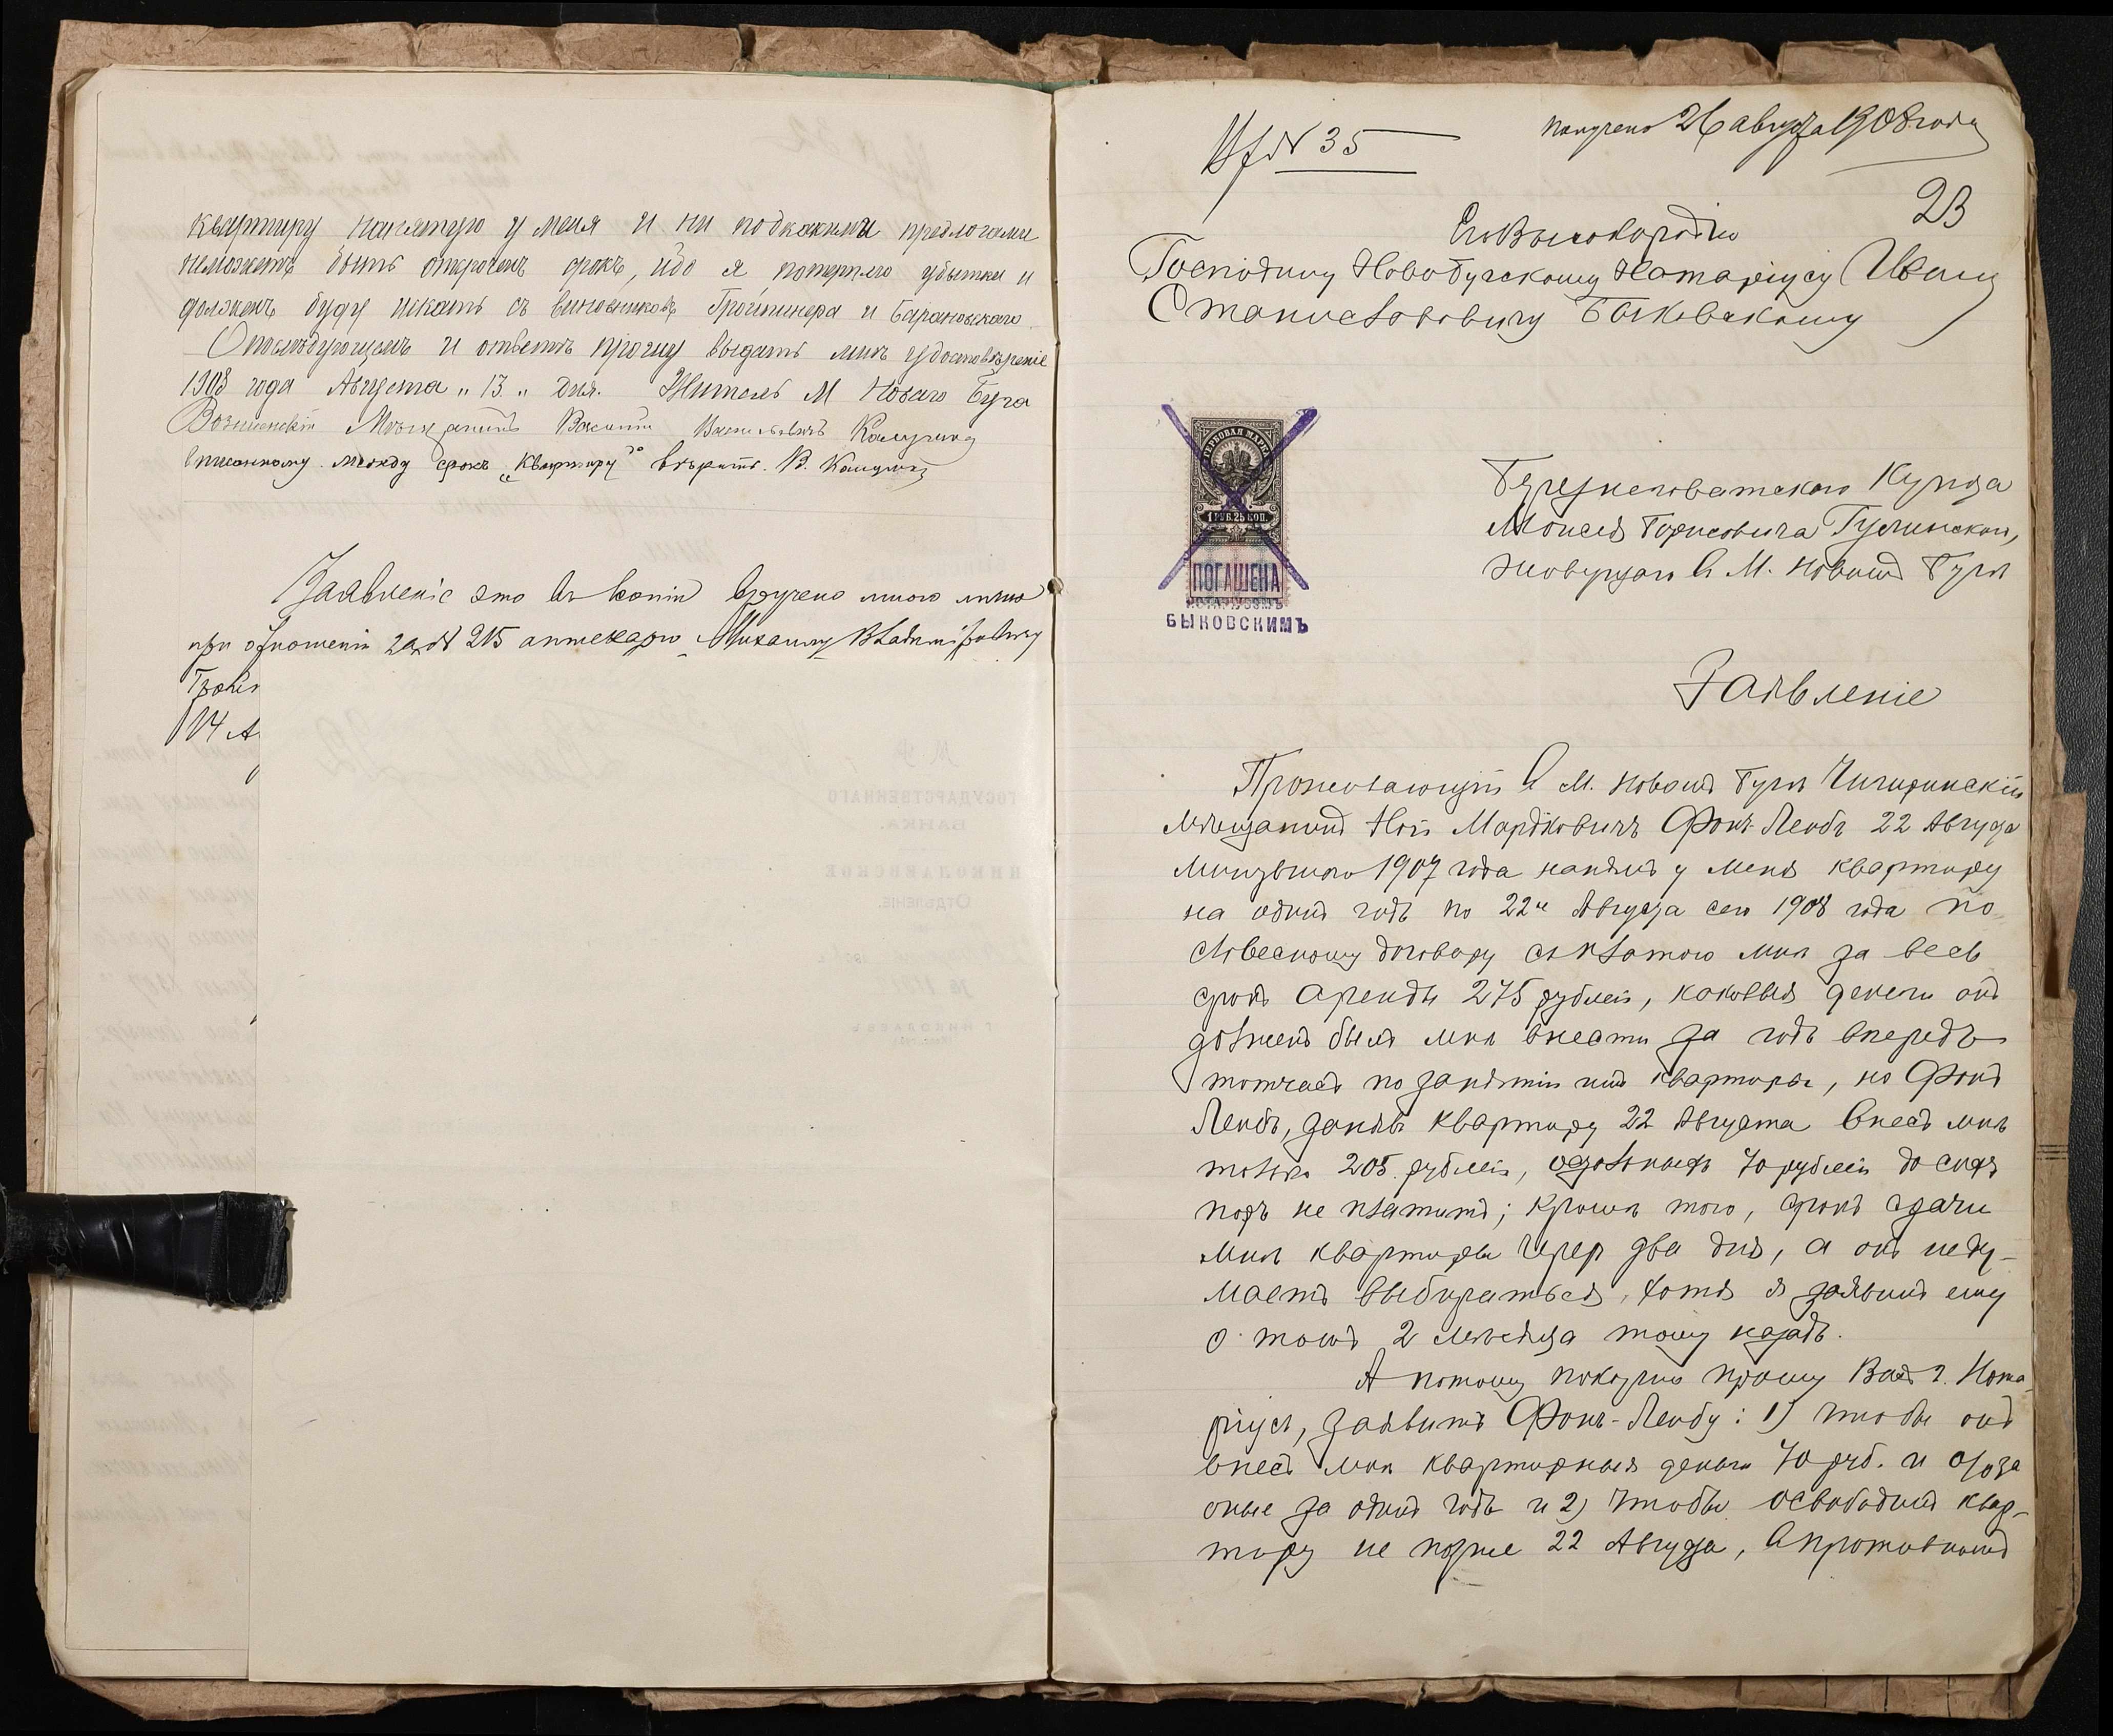 квартиру нанятую у меня и ни подкакими предлогами
неможетъ быть отсроченъ срокъ, ибо я потерплю убытки и
долженъ буду искать съ виновниковъ Тройтинера и Барановскаго
Опослѣдующемъ и отвѣтъ прошу выдать мнѣ удостовѣреніе
1908 года Августа „13„ дня. Житель М Новаго Буга
Вознисенскій Мѣщанинъ Василій Васильевичъ
вписанному между срокъ „квартиру“ вѣрить. В.
Заявленіе это въ копіи вручено мною лично
при отношеніи за № 215 аптекарю Михаилу Владиміровичу
Трой
14 А
№ 35
получено 26 августа 1908 года
23
Его Высокородію
Господину Новобугскому Нотаріусу Ивану
Станиславовичу Быковскому
ГЕРБОВАЯ МАРКА
1 РУБ. 25 КОП.
ПОГАШЕНА
НОТАРІУСОМЪ
БЫКОВСКИМЪ
Березнеговатскаго Купца
Моисея Борисовича
живущаго въ М. Новомъ Бугѣ
Заявленіе
Проживающій въ М. Новомъ Бугѣ Чигиринскій
мѣщанинъ Ной Мордковичъ Фонъ-Лейбъ 22 Августа
минувшаго 1907 года нанялъ у меня квартиру
на одинъ годъ по 22е Августа сего 1908 года по
словесному договору съ платою мнѣ за весь
срокъ аренды 275 рублей, каковыя деньги онъ
долженъ былъ мнѣ внести за годъ впередъ
тотчасъ по занятіи имъ квартиры, но Фонъ
Лейбъ, занявъ квартиру 22 Августа внесъ мнѣ
только 205 рублей, остальныхъ 70 рублей до сихъ
поръ не платитъ; кромѣ того, срокъ сдачи
мнѣ квартиры черезъ два дня, а онъ неду-
маетъ выбираться, хотя я заявилъ ему
о томъ 2 мѣсяца тому назадъ.
А потому покорно прошу Васъ г. Нота-
ріусъ, заявить Фонъ-Лейбу: 1) чтобы онъ
внесъ мнѣ квартирныя деньги 70 руб. и % за
оные за одинъ годъ и 2) чтобы освободилъ квар-
тиру не позже 22 Августа, впротивномъ